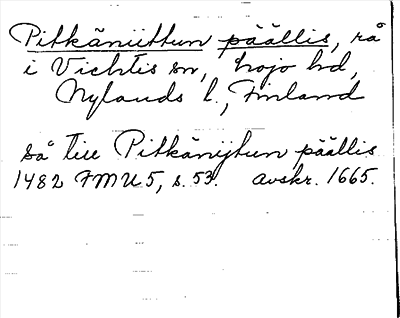 Pitkäniittun päällis, rå
i Vichtis sn, Lojo hd,
Nylands l., Finland
så till Pitkänijtun päällis
1482 FMU 5, s. 53. avskr. 1665.